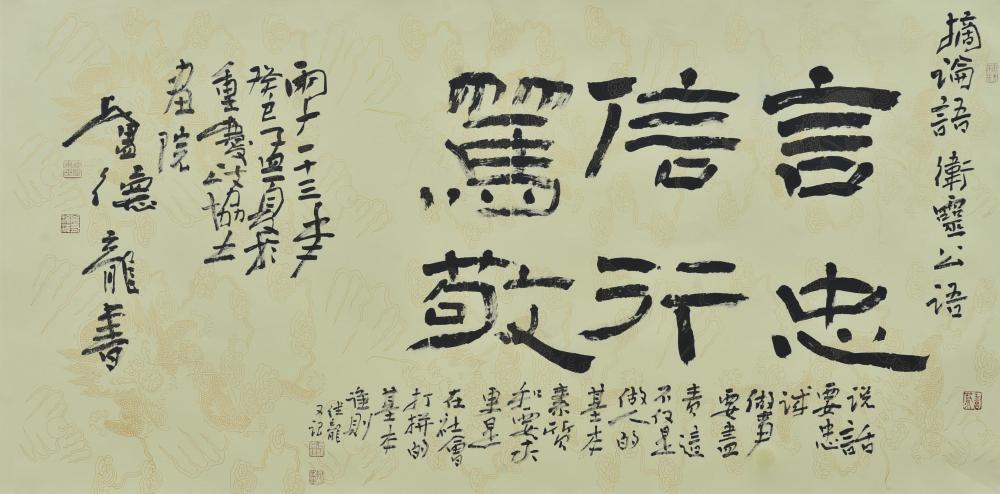 摘論語 衛靈公語
言忠
信行
篤敬
说話
要忠
诚
做事
要盡
責這
不仅是
做人的
基本
素質
和要求
更是
在社會
打拼的
基本
準則
德龍
又記
兩千一十三年
癸巳孟夏於
重慶
畫院
盧德龍書